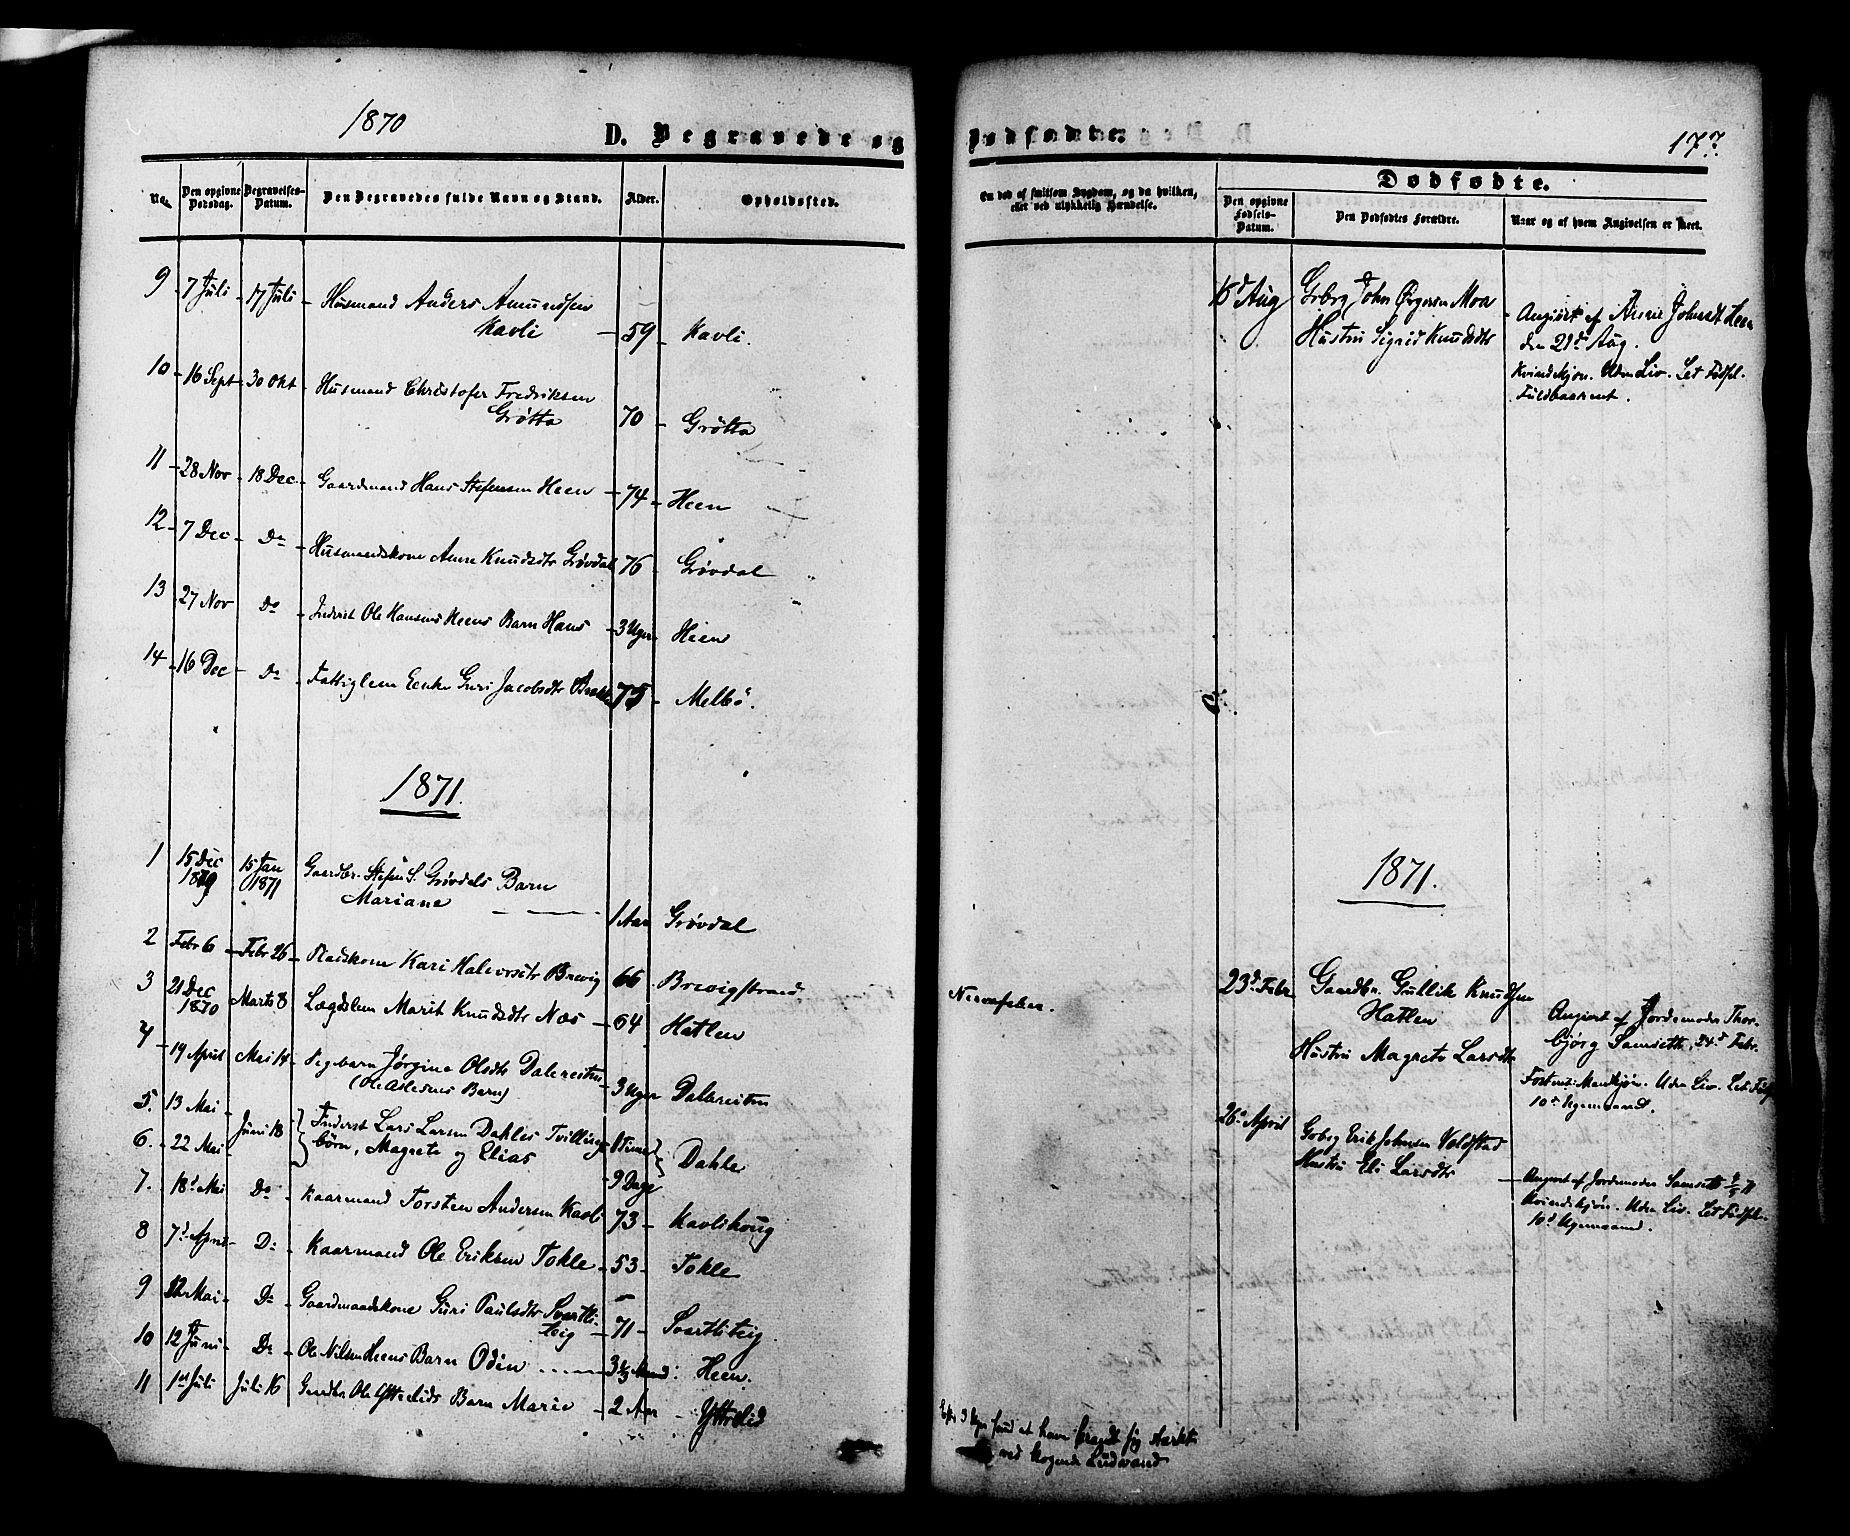 1870
D. Begravede og
No.
Den opgivne Dødsdag.
Begravelses-Datum.
Den Begravedes fulde Navn og Stand.
Alder.
Opholdssted.
9 - 7 Juli - 17 Juli - Husmand Anders Amundsen
Kavli - 59 - Kavli.
10 - 16 Sept - 30 Okt - Husmand Christofer Fredriksen
Grøtta 70 - Grøtta
11 - 28 Nov - 18 Dec - Gaardmand Hans Stefensen Heen - 74 - Heen
12 - 7 Dec - Do - Husmandskone Anne Knudsdtr Grøvdal 76 - Grøvdal
13 27 Nov Do - Inderst Ole Hansens Heens Barn Hans - 3 Uger Heen
14 - 16 Dec - Do - Fattiglem Enke Guri Jacobsdtr 75 - Melbö.
1871.
1 15 Dec 1870 15 Jan 1871 Gaardbr. Stefen S. Grøvdals Barn
Mariane - 1 Aar Grøvdal
2 Febr 6 - Febr 26 - Kari Halvorsdtr Brevig 66 - Brevigstrand
3 21 Dec 1870 Marts 8 Lægdslem Marit Knudsdtr Næs - 64 - Hatlen
4 - 19 April Mai 14 - Pigebarn Jørgine Olsdtr Dalereiten
(Ole Barn) 3 Uger Dalereiten
5. 13 Mai Juni 18 Inderst Lars Larsen Dahles Tvillinge- Time
6. - 22 Mai børn, Magrete og Elias 9 Dage Dahle
7. 18d Mai Do - Kaarmand Torsten Andersen Kavli 73 - Kavlihoug
8 7d April - Do - Kaarmand Ole Eriksen Tokle - 53 - Tokle
9 12 Mai - Do - Gaardmandskone Guri Paulsdtr Svartli-
teig - 71 - Svartliteig
10 12 Juni - Do - Ole Nilsen Heens Barn Odin - 3½ Maand: Heen.
11 1st Juli Juli 16 Gaardbr. Ole Yttrelids Barn Marie - 2 Aar - Yttrelid
Dødfødte.
177.
En død af smitsom Sygdom, og da hvilken,
eller ved ulykkelig Hændelse.
Dødfødte.
Den opgivne Fødsels-Datum.
Den Dødfødtes Forældre.
Naar og af hvem Angivelsen er skeet.
18d Aug Grbrg John Moa
Hustru Sigrid Knudsdtr
Angivet af Anne Johnsdt Heen
den 21d Aug.
Kvindekjøn. Uden Liv. Let Fødsel.
Fuldbaarent.
1871.
Nervefeber.
23d Febr. Gaardbr. Gullik Knudsen
Hatlen
Hustru Magrete Larsdtr
Angivet af Jordemoder Thor-
bjørg Samseth, 24d Febr.
Mandkjøn. Uden Liv. Let Føds
10d Ugemaaned.
26d April Grbrg Erik Johnsen Voldstad
Hustru Eli Larsdtr
- Angivet af Jordemoder Samseth
Kvindekjøn. Uden Liv. Let Fødsl.
10d Ugemaaned.
at have brændt sig stærkt
ved kogende Ludvand